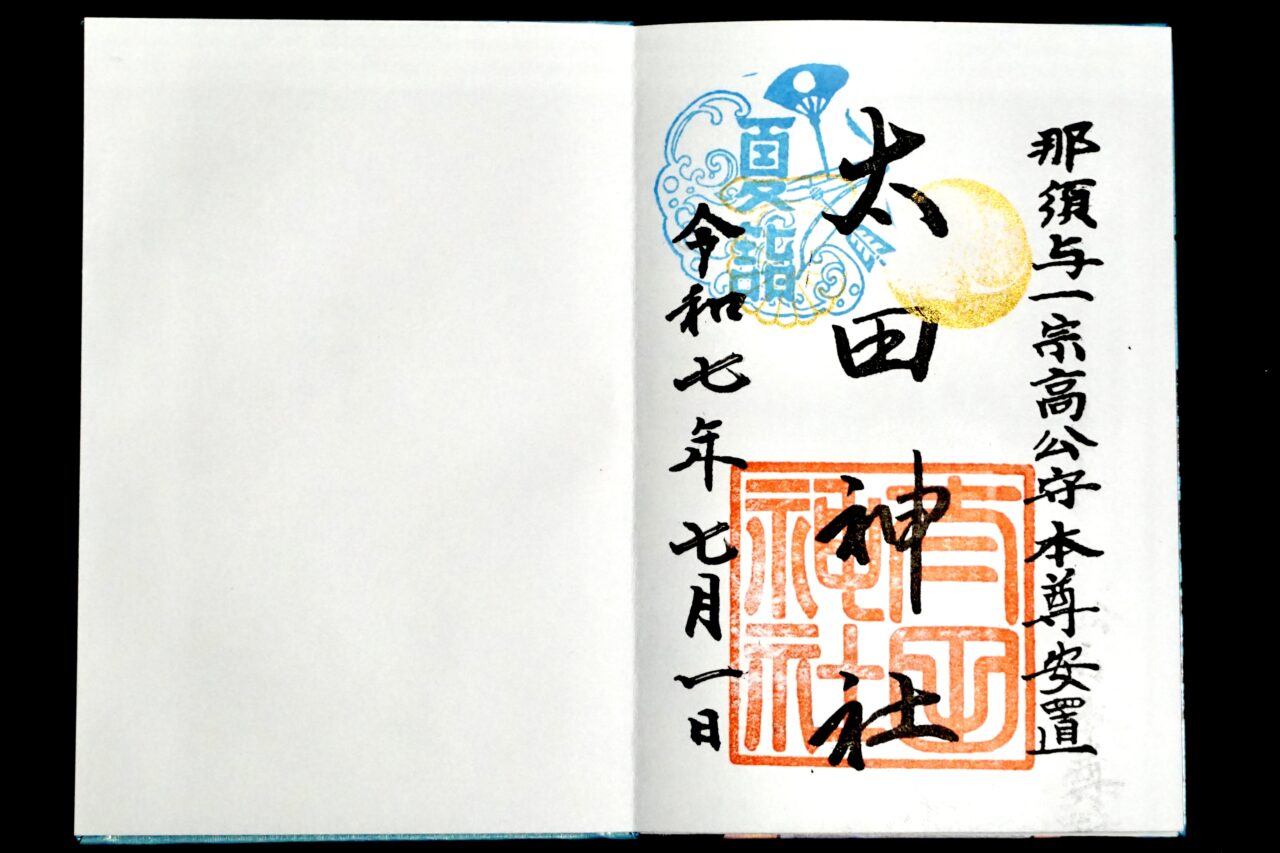 那須与一宗高公守本尊安置
太田神社
夏詣
令和七年七月一日
太田神社